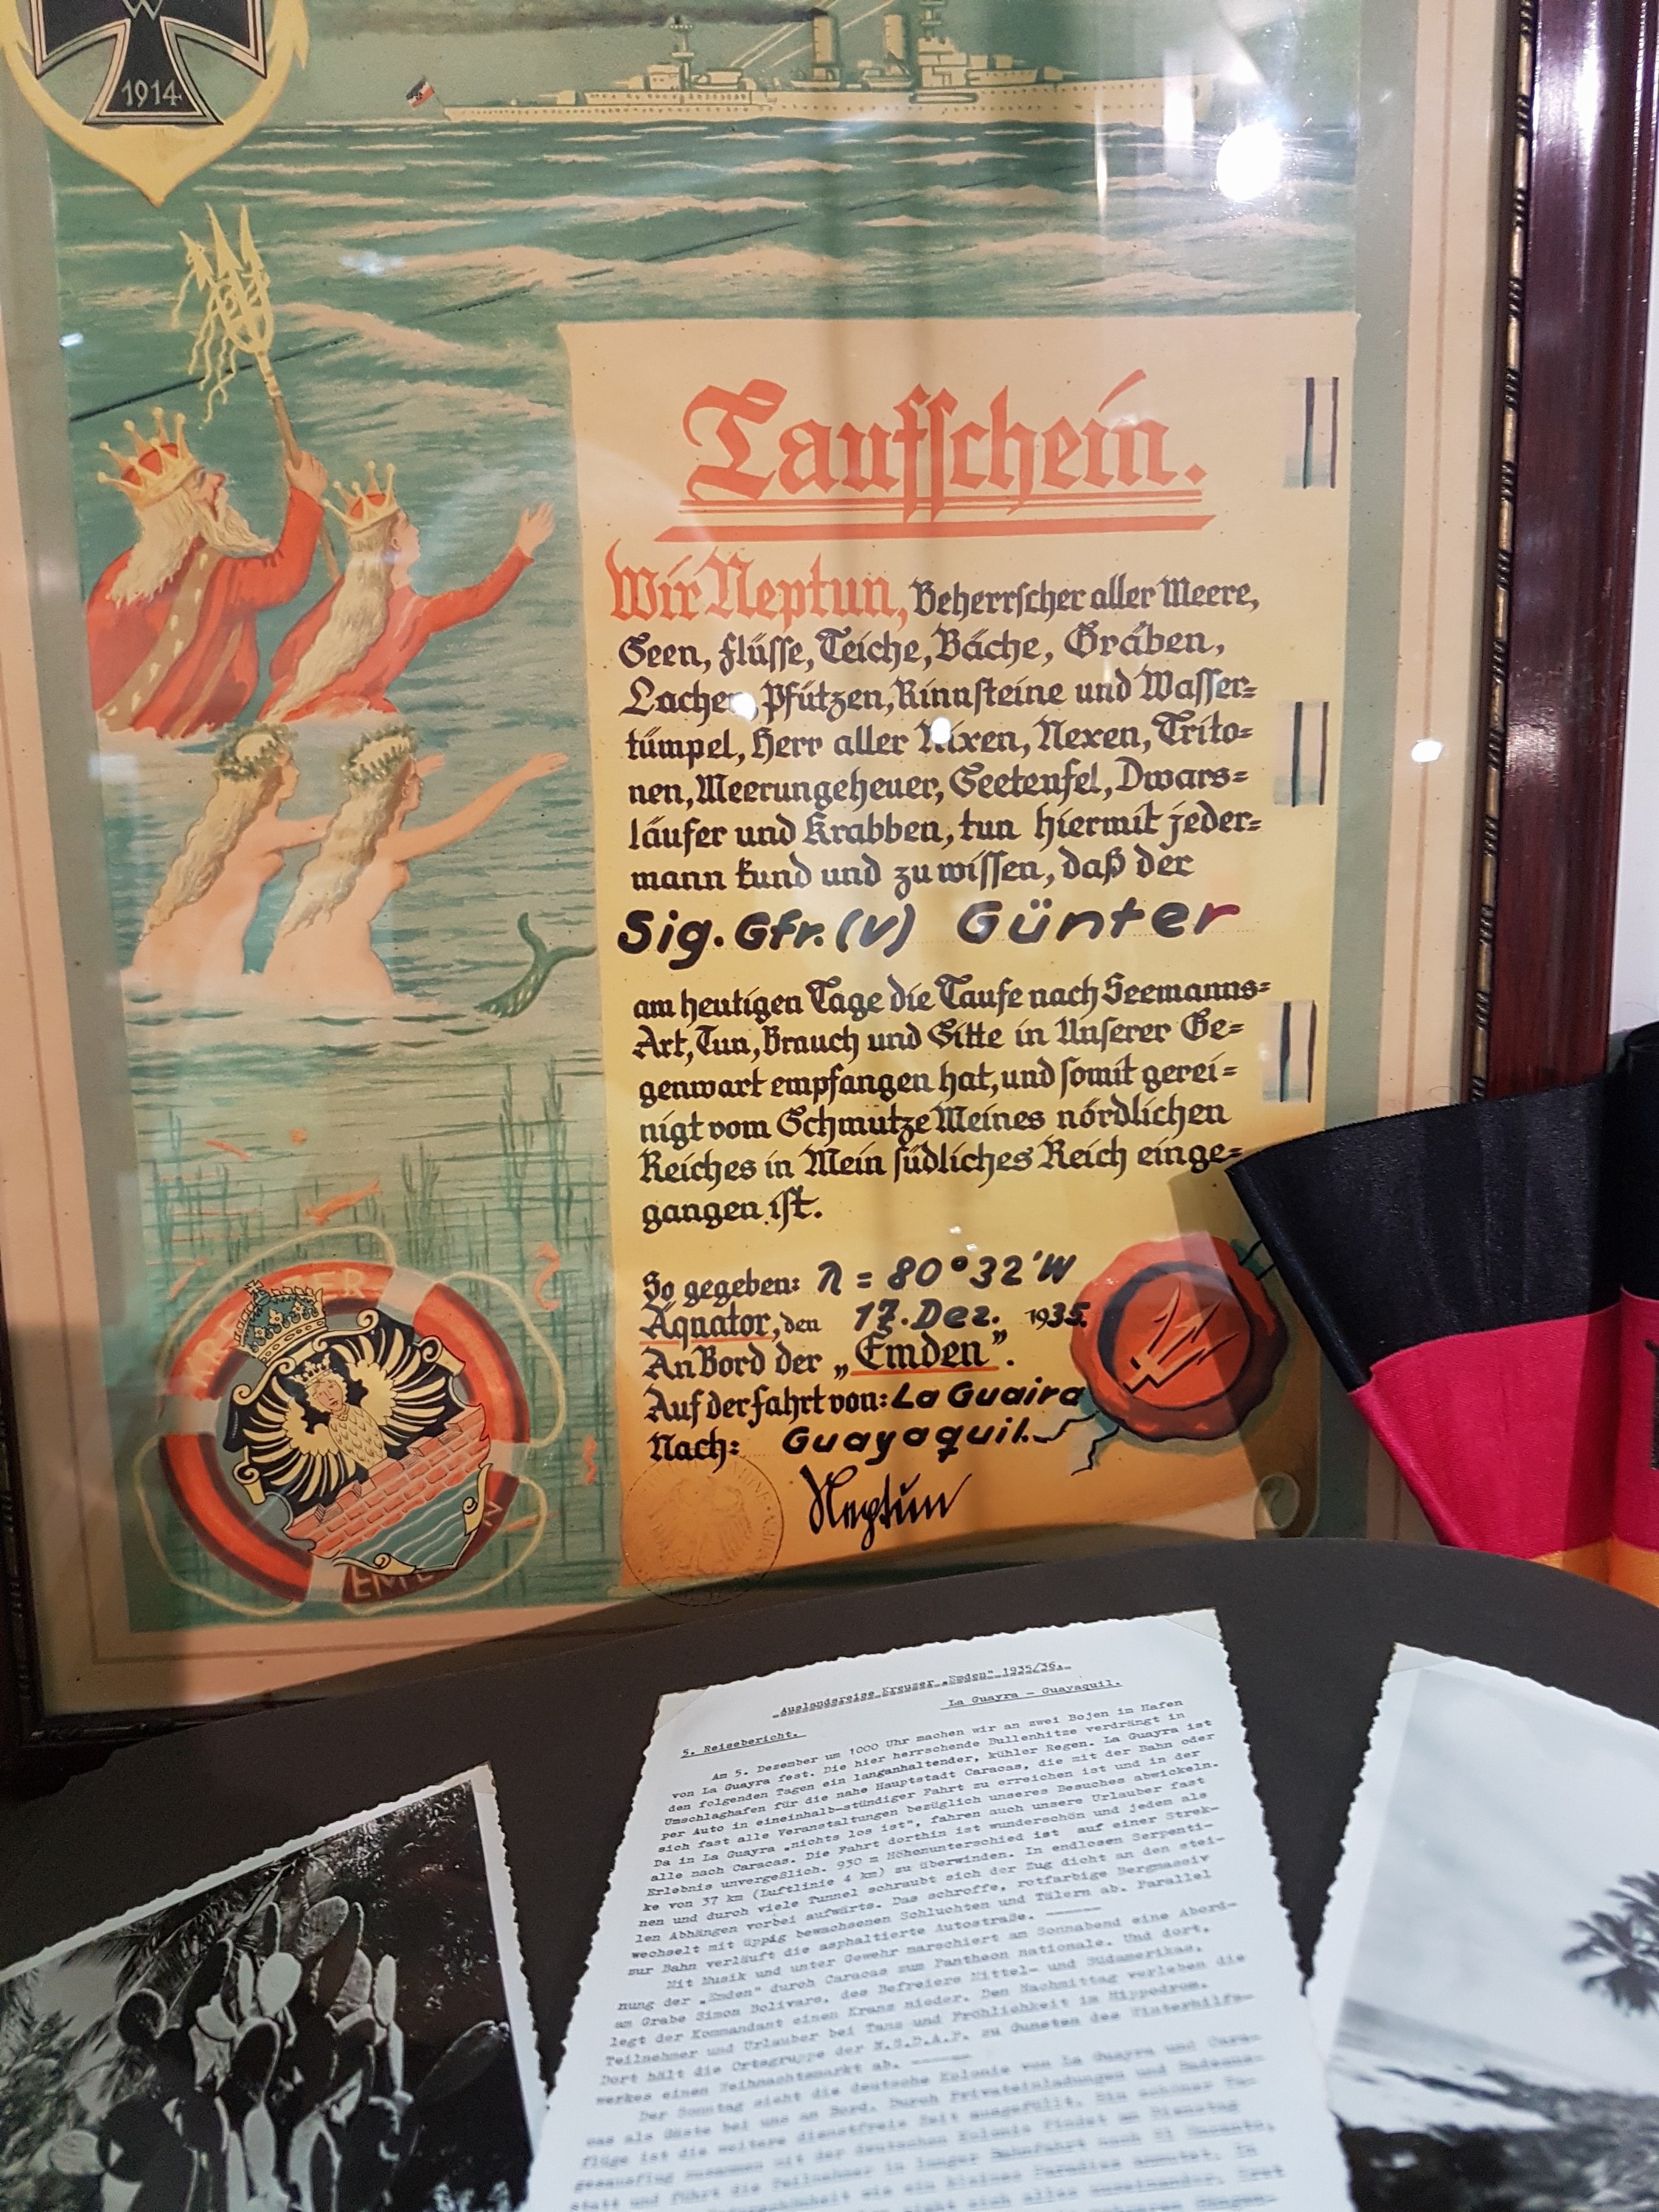 W
1914
Taufschein.
Wir Neptun, Beherrscher aller Meere,
Seen, Flüsse, Teiche, Bäche, Gräben,
Lachen, Pfützen, Rinnsteine und Wasser=
tümpel, Herr aller Nixen, Nexen, Trito=
nen, Meerungeheuer, Seeteufel, Dwars=
läufer und Krabben, tun hiermit jeder=
mann kund und zu wissen, daß der
Sig. Gfr. (V) Günter
am heutigen Tage die Taufe nach Seemanns=
Art, Tun, Brauch und Sitte in Unserer Ge=
genwart empfangen hat, und somit gerei=
nigt vom Schmutze Meines nördlichen
Reiches in Mein südliches Reich einge=
gangen ist.
So gegeben: λ = 80°32'W
Äquator, den 17. Dez. 1935.
An Bord der „Emden”.
Auf der Fahrt von: La Guaira
Nach: Guayaquil.
Neptun
Auslandsreise Kreuzer „Emden" 1935/36.
La Guayra - Guayaquil.
5. Reisebericht.
Am 5. Dezember um 1000 Uhr machen wir an zwei Bojen im Hafen
von La Guayra fest. Die hier herrschende Bullenhitze verdrängt in
den folgenden Tagen ein langanhaltender, kühler Regen. La Guayra ist
Umschlaghafen für die nahe Hauptstadt Caracas, die mit der Bahn oder
per Auto in eineinhalb-stündiger Fahrt zu erreichen ist und in der
sich fast alle Veranstaltungen bezüglich unseres Besuches abwickeln.
Da in La Guayra „nichts los ist", fahren auch unsere Urlauber fast
alle nach Caracas. Die Fahrt dorthin ist wunderschön und jedem als
Erlebnis unvergeßlich. 930 m Höhenunterschied ist auf einer Strek-
ke von 37 km (Luftlinie 4 km) zu überwinden. In endlosen Serpenti-
nen und durch viele Tunnel schraubt sich der Zug dicht an den stei-
len Abhängen vorbei aufwärts. Das schroffe, rotfarbige Bergmassiv
wechselt mit üppig bewachsenen Schluchten und Tälern ab. Parallel
zur Bahn verläuft die asphaltierte Autostraße.
Mit Musik und unter Gewehr marschiert am Sonnabend eine Abord-
nung der „Emden" durch Caracas zum Pantheon nationale. Und dort,
am Grabe Simon Bolivars, des Befreiers Mittel- und Südamerikas,
legt der Kommandant einen Kranz nieder. Den Nachmittag verleben die
Teilnehmer und Urlauber bei Tanz und Fröhlichkeit im Hippodrom.
Dort hält die Ortsgruppe der N.S.D.A.P. zu Gunsten des Winterhilfs-
werkes einen Weihnachtsmarkt ab.
Der Sonntag sieht die deutsche Kolonie von La Guayra und Cara-
cas als Gäste bei uns an Bord. Durch Privateinladungen und Badeaus-
flüge ist die weitere dienstfreie Zeit ausgefüllt. Ein schöner